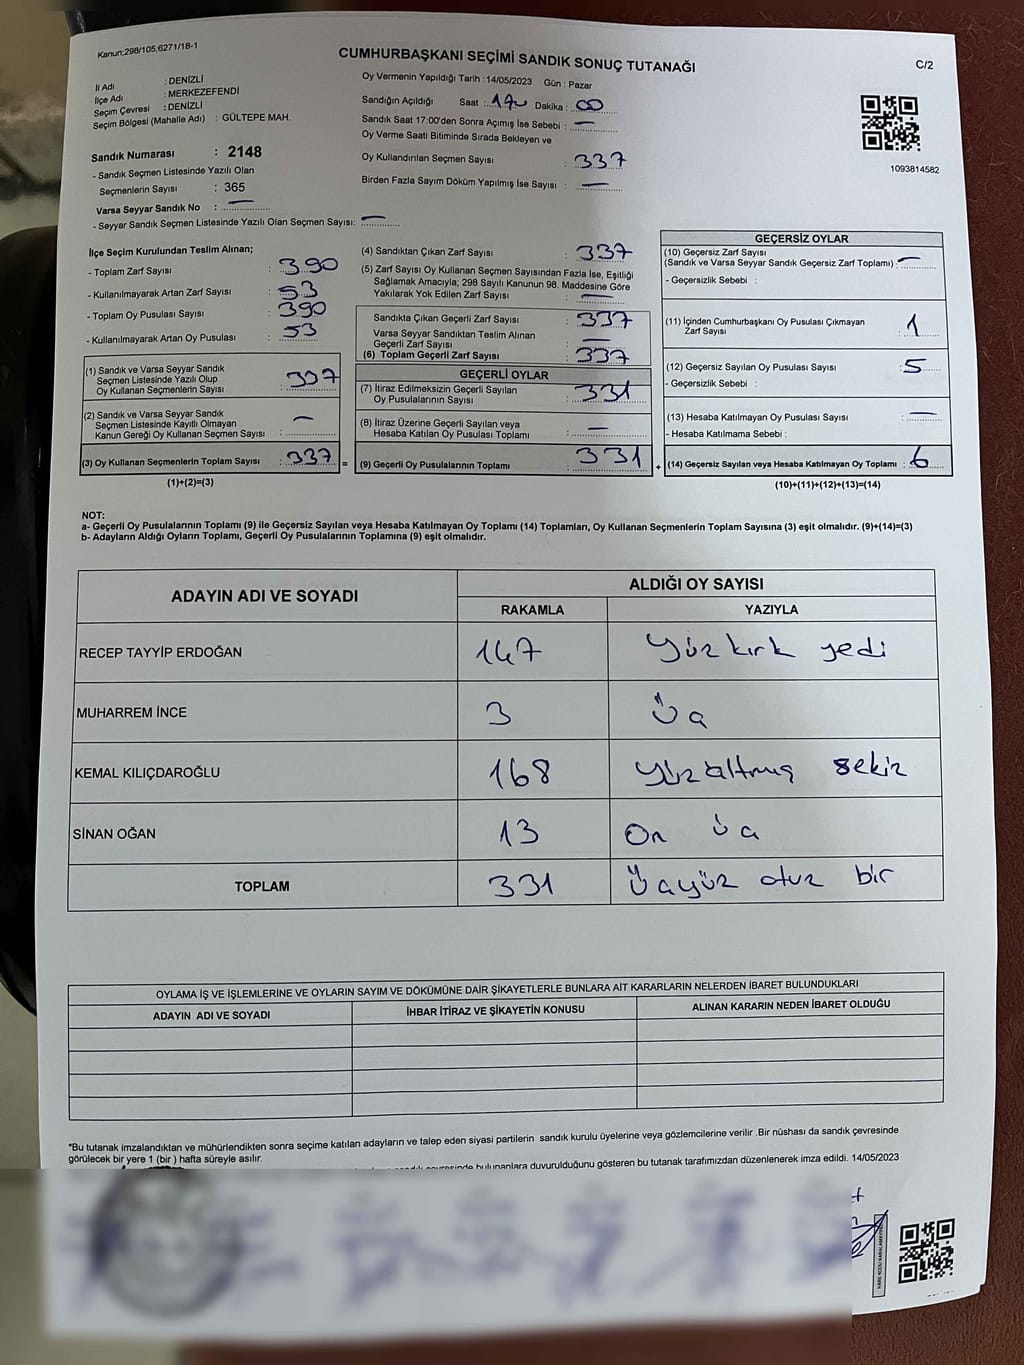 Kanun:298/105,6271/18-1
CUMHURBAŞKANI SEÇİMİ SANDIK SONUÇ TUTANAĞI
C/2
İl Adı : DENİZLİ
İlçe Adı : MERKEZEFENDİ
Seçim Çevresi : DENİZLİ
Seçim Bölgesi (Mahalle Adı) : GÜLTEPE MAH.
Sandık Numarası : 2148
- Sandık Seçmen Listesinde Yazılı Olan
Seçmenlerin Sayısı : 365
Varsa Seyyar Sandık No : —
- Seyyar Sandık Seçmen Listesinde Yazılı Olan Seçmen Sayısı: —
Oy Vermenin Yapıldığı Tarih :14/05/2023 Gün : Pazar
Sandığın Açıldığı Saat : Dakika : 00
Sandık Saat 17:00'den Sonra Açımış İse Sebebi : —
Oy Verme Saati Bitiminde Sırada Bekleyen ve
Oy Kullandırılan Seçmen Sayısı : 337
Birden Fazla Sayım Döküm Yapılmış İse Sayısı : —
1093814582
İlçe Seçim Kurulundan Teslim Alınan;
- Toplam Zarf Sayısı : 390
- Kullanılmayarak Artan Zarf Sayısı : 53
- Toplam Oy Pusulası Sayısı : 390
- Kullanılmayarak Artan Oy Pusulası : 53
(1) Sandık ve Varsa Seyyar Sandık
Seçmen Listesinde Yazılı Olup
Oy Kullanan Seçmenlerin Sayısı : 337
(2) Sandık ve Varsa Seyyar Sandık
Seçmen Listesinde Kayıtlı Olmayan
Kanun Gereği Oy Kullanan Seçmen Sayısı : —
(3) Oy Kullanan Seçmenlerin Toplam Sayısı : 337 =
(1)+(2)=(3)
(4) Sandıktan Çıkan Zarf Sayısı : 337
(5) Zarf Sayısı Oy Kullanan Seçmen Sayısından Fazla İse, Eşitliği
Sağlamak Amacıyla; 298 Sayılı Kanunun 98. Maddesine Göre
Yakılarak Yok Edilen Zarf Sayısı : —
Sandıkta Çıkan Geçerli Zarf Sayısı : 337
Varsa Seyyar Sandıktan Teslim Alınan
Geçerli Zarf Sayısı : —
(6) Toplam Geçerli Zarf Sayısı : 337
GEÇERLİ OYLAR
(7) İtiraz Edilmeksizin Geçerli Sayılan
Oy Pusulalarının Sayısı : 331
(8) İtiraz Üzerine Geçerli Sayılan veya
Hesaba Katılan Oy Pusulası Toplamı : —
(9) Geçerli Oy Pusulalarının Toplamı : 331 +
GEÇERSİZ OYLAR
(10) Geçersiz Zarf Sayısı
(Sandık ve Varsa Seyyar Sandık Geçersiz Zarf Toplamı) : —
- Geçersizlik Sebebi :
(11) İçinden Cumhurbaşkanı Oy Pusulası Çıkmayan
Zarf Sayısı : 1
(12) Geçersiz Sayılan Oy Pusulası Sayısı : 5
- Geçersizlik Sebebi :
(13) Hesaba Katılmayan Oy Pusulası Sayısı : —
- Hesaba Katılmama Sebebi :
(14) Geçersiz Sayılan veya Hesaba Katılmayan Oy Toplamı : 6
(10)+(11)+(12)+(13)=(14)
NOT:
a- Geçerli Oy Pusulalarının Toplamı (9) ile Geçersiz Sayılan veya Hesaba Katılmayan Oy Toplamı (14) Toplamları, Oy Kullanan Seçmenlerin Toplam Sayısına (3) eşit olmalıdır. (9)+(14)=(3)
b- Adayların Aldığı Oyların Toplamı, Geçerli Oy Pusulalarının Toplamına (9) eşit olmalıdır.
ADAYIN ADI VE SOYADI
ALDIĞI OY SAYISI
RAKAMLA YAZIYLA
RECEP TAYYİP ERDOĞAN 147 Yüz kırk yedi
MUHARREM İNCE 3 Üç
KEMAL KILIÇDAROĞLU 168 Yüz altmış sekiz
SİNAN OĞAN 13 On üç
TOPLAM 331 Üçyüz otuz bir
OYLAMA İŞ VE İŞLEMLERİNE VE OYLARIN SAYIM VE DÖKÜMÜNE DAİR ŞİKAYETLERLE BUNLARA AİT KARARLARIN NELERDEN İBARET BULUNDUKLARI
ADAYIN ADI VE SOYADI İHBAR İTİRAZ VE ŞİKAYETİN KONUSU ALINAN KARARIN NEDEN İBARET OLDUĞU
*Bu tutanak imzalandıktan ve mühürlendikten sonra seçime katılan adayların ve talep eden siyasi partilerin sandık kurulu üyelerine veya gözlemcilerine verilir .Bir nüshası da sandık çevresinde
görülecek bir yere 1 (bir ) hafta süreyle asılır.
bulunanlara duyurulduğunu gösteren bu tutanak tarafımızdan düzenlenerek imza edildi. 14/05/2023